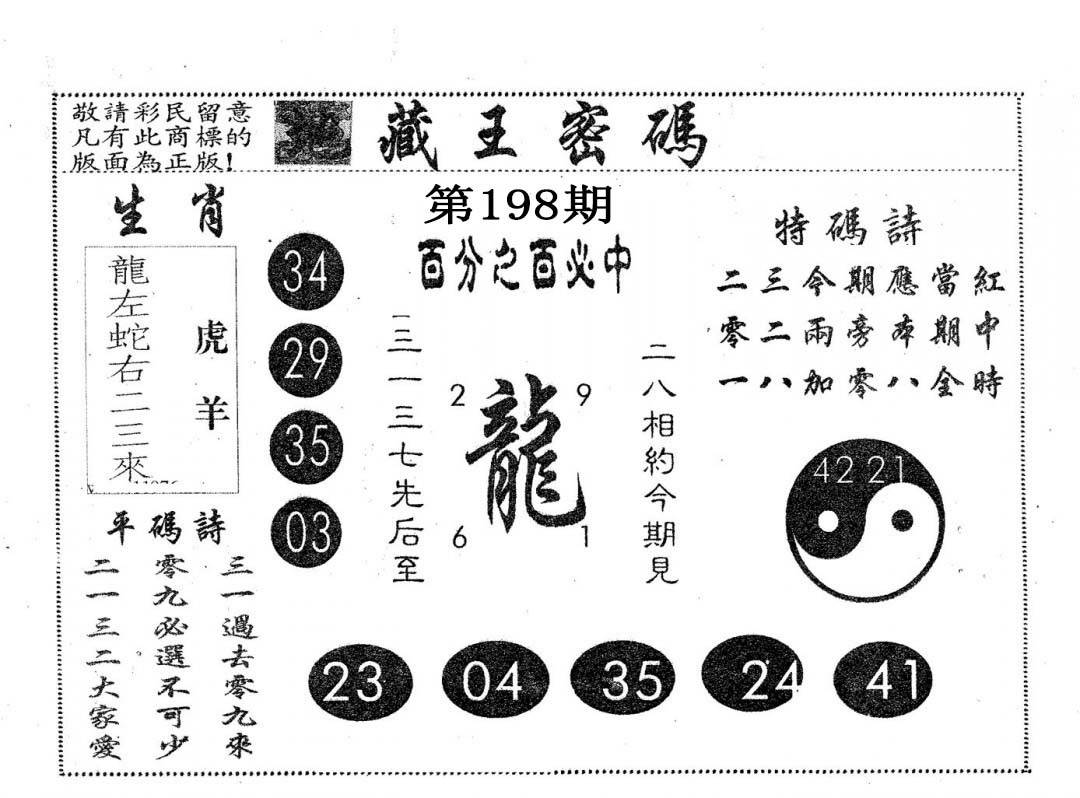 敬請彩民留意
凡有此商標的
版面為正版!
地藏王密碼
第198期
百分之百必中
生肖
龍左蛇右二三來
虎羊
34
29
35
03
二三一三七先后至
2 9
龍
6 1
二八相約今期見
特碼詩
二三今期應當紅
零二兩旁本期中
一八加零八全時
42 21
平碼詩
三一過去零九來
零九必選不可少
二一三二大家愛
23 04 35 24 41